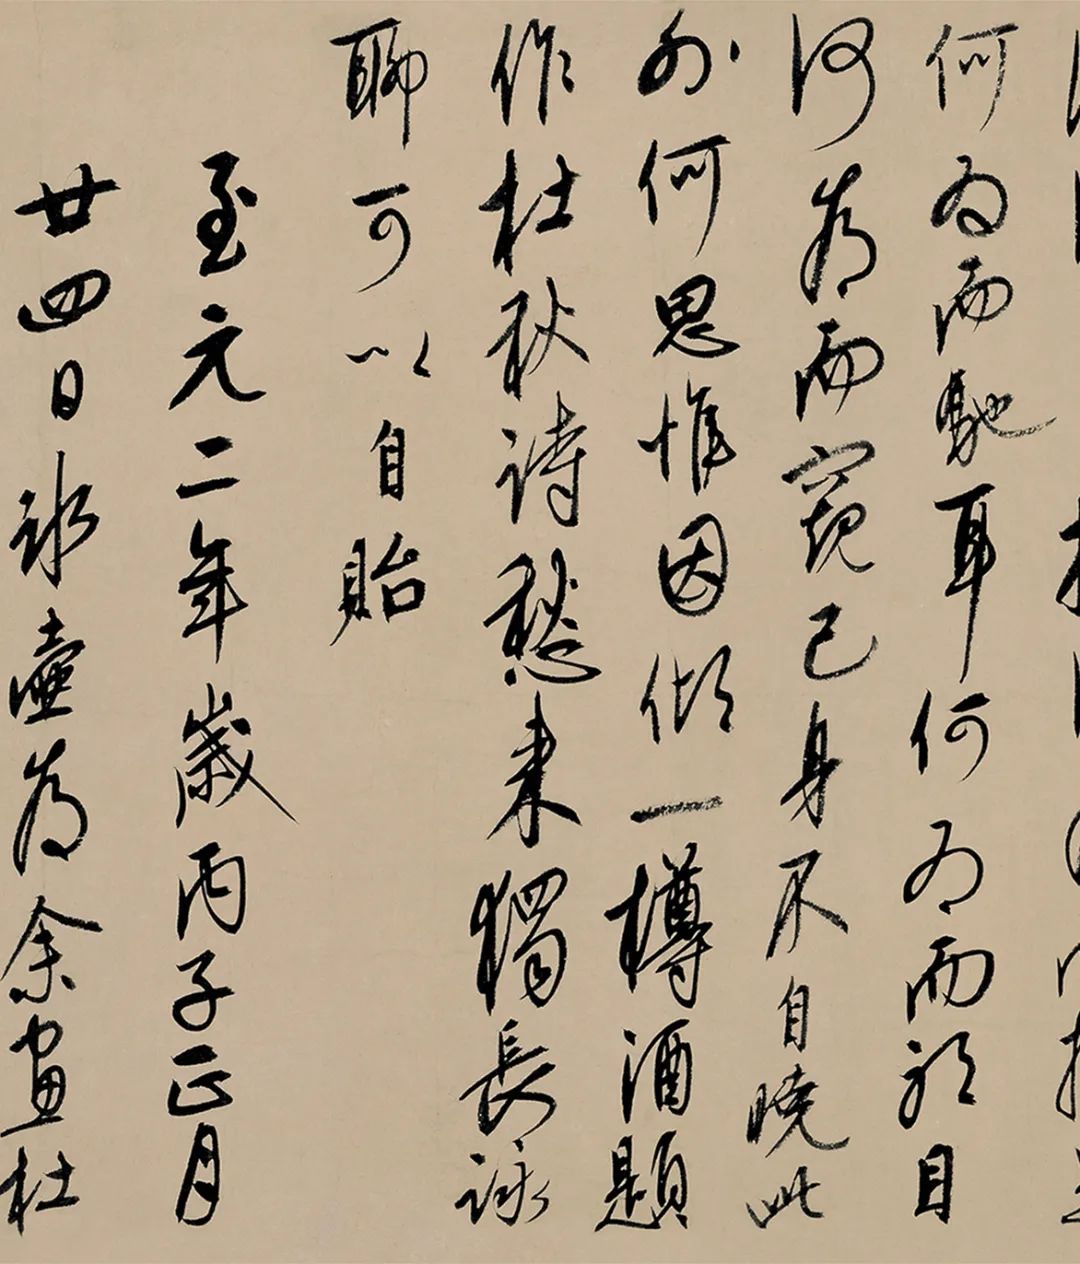 何為而馳耳何為而聽目
何為而窺己身不自曉此
外何思惟因傾一樽酒題
作杜秋詩愁來獨長詠
聊可以自貽
至元二年歲丙子正月
廿四日冰壺為余畫杜